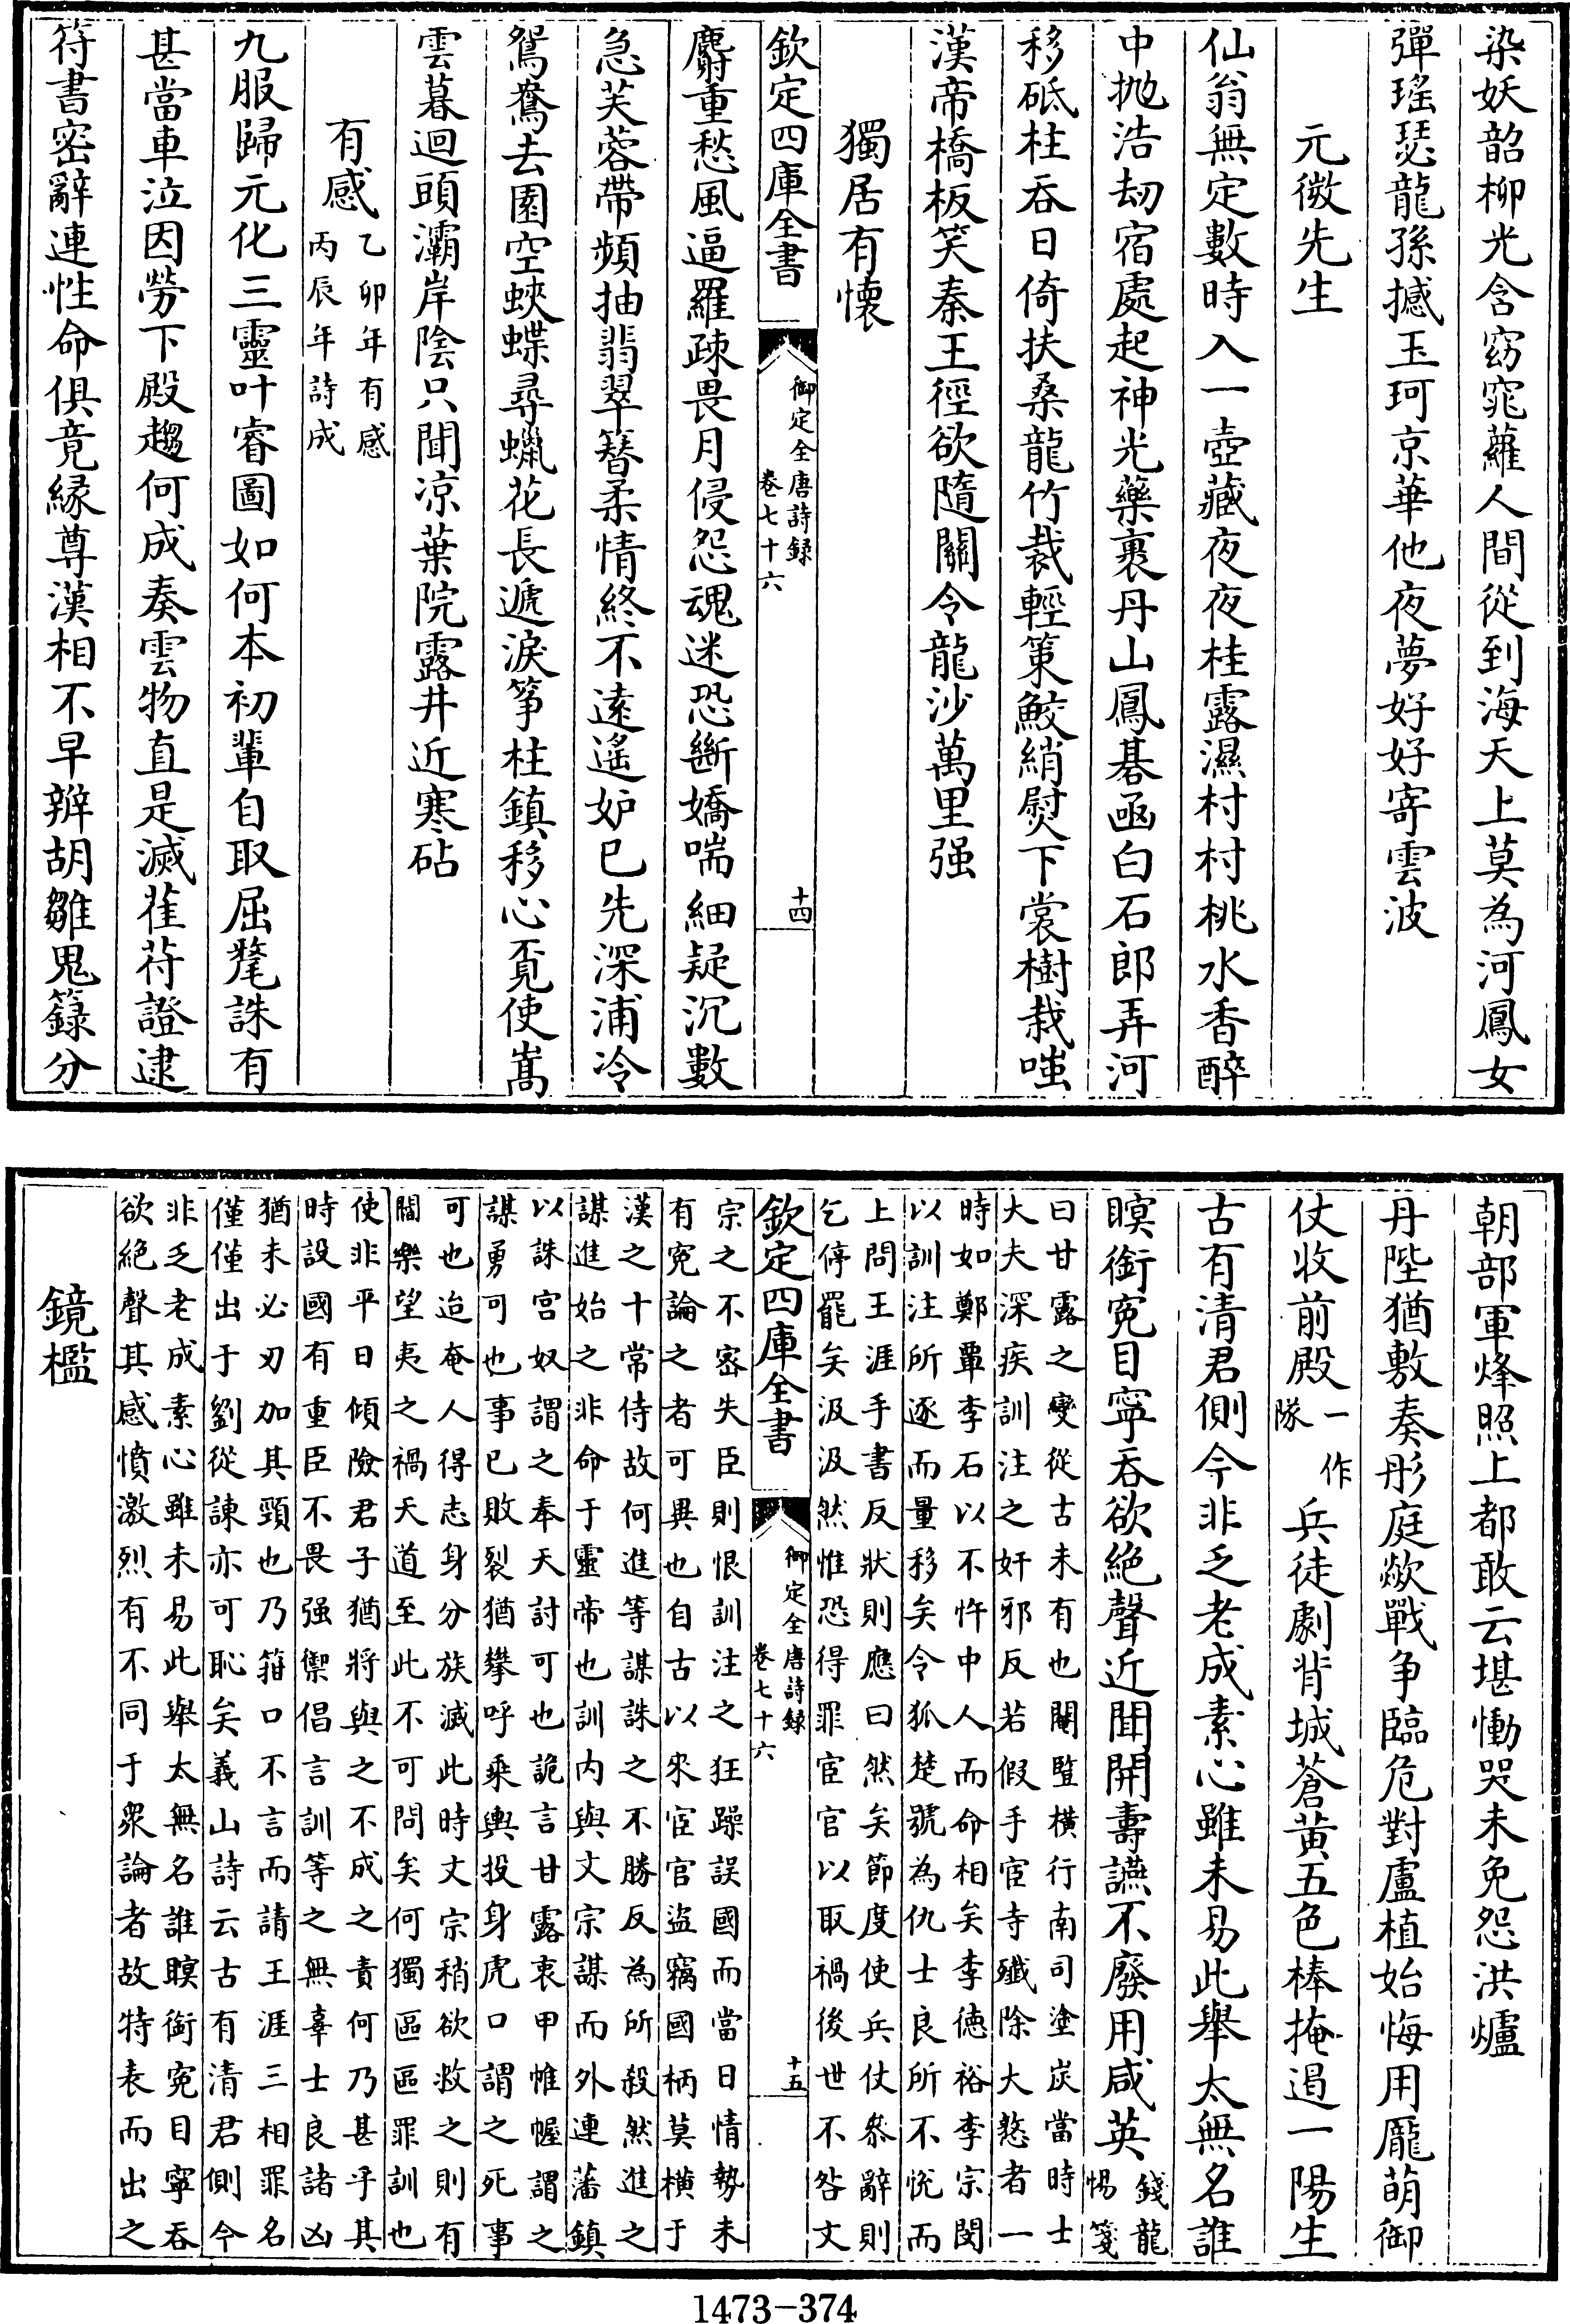 染妖韶柳光含窈窕蘿人間從到海天上莫為河鳳女
彈瑤瑟龍孫撼玉珂京華他夜夢好好寄雲波
元微先生
仙翁無定數時入一壺藏夜夜桂露濕村村桃水香醉
中拋浩劫宿處起神光藥裹丹山鳳碁函白石郎弄河
移砥柱吞日倚扶桑龍竹裁輕策鮫綃熨下裳樹栽嗤
漢帝橋板笑秦王徑欲隨關令龍沙萬里强
獨居有懷
欽定四庫全書
御定全唐詩録
卷七十六
十四
麝重愁風逼羅疎畏月侵怨魂迷恐斷嬌喘細疑沉數
急芙蓉帶頻抽翡翠簪柔情終不遠遙妒已先深浦冷
鴛鴦去園空蛺蝶尋蠟花長遞淚箏柱鎮移心覔使嵩
雲暮迴頭灞岸陰只聞凉葉院露井近寒砧
有感
乙卯年有感
丙辰年詩成
九服歸元化三靈叶睿圖如何本初輩自取屈氂誅有
甚當車泣因勞下殿趨何成奏雲物直是滅萑苻證逮
符書密辭連性命俱竟縁尊漢相不早辨胡雛鬼籙分
朝部軍烽照上都敢云堪慟哭未免怨洪爐
丹陛猶敷奏彤庭歘戰争臨危對盧植始悔用龎萌御
仗收前殿
一作
隊
兵徒劇背城蒼黄五色棒掩遏一陽生
古有清君側今非乏老成素心雖未易此舉太無名誰
瞑銜寃目寧吞欲絶聲近聞開壽讌不廢用咸英
錢龍
惕箋
曰甘露之變從古未有也閹豎横行南司塗炭當時士
大夫深疾訓注之奸邪反若假手宦寺殲除大憝者一
時如鄭覃李石以不忤中人而命相矣李德裕李宗閔
以訓注所逐而量移矣令狐楚號為仇士良所不悅而
上問王涯手書反狀則應曰然矣節度使兵仗叅辭則
乞停罷矣汲汲然惟恐得罪宦官以取禍後世不咎文
欽定四庫全書
御定全唐詩録
卷七十六
十五
宗之不密失臣則恨訓注之狂躁誤國而當日情勢未
有寃論之者可異也自古以來宦官盜竊國柄莫横于
漢之十常侍故何進等謀誅之不勝反為所殺然進之
謀進始之非命于靈帝也訓内與文宗謀而外連藩鎮
以誅宫奴謂之奉天討可也詭言甘露衷甲帷幄謂之
謀勇可也事已敗裂猶攀呼乘輿投身虎口謂之死事
可也迨奄人得志身分族滅此時文宗稍欲救之則有
闔樂望夷之禍天道至此不可問矣何獨區區罪訓也
使非平日傾險君子猶將與之不成之責何乃甚乎其
時設國有重臣不畏强禦倡言訓等之無辜士良諸凶
猶未必刃加其頸也乃箝口不言而請王涯三相罪名
僅僅出于劉從諫亦可恥矣義山詩云古有清君側今
非乏老成素心雖未易此舉太無名誰瞑銜寃目寧吞
欲絶聲其感憤激烈有不同于衆論者故特表而出之
鏡檻
1473-374